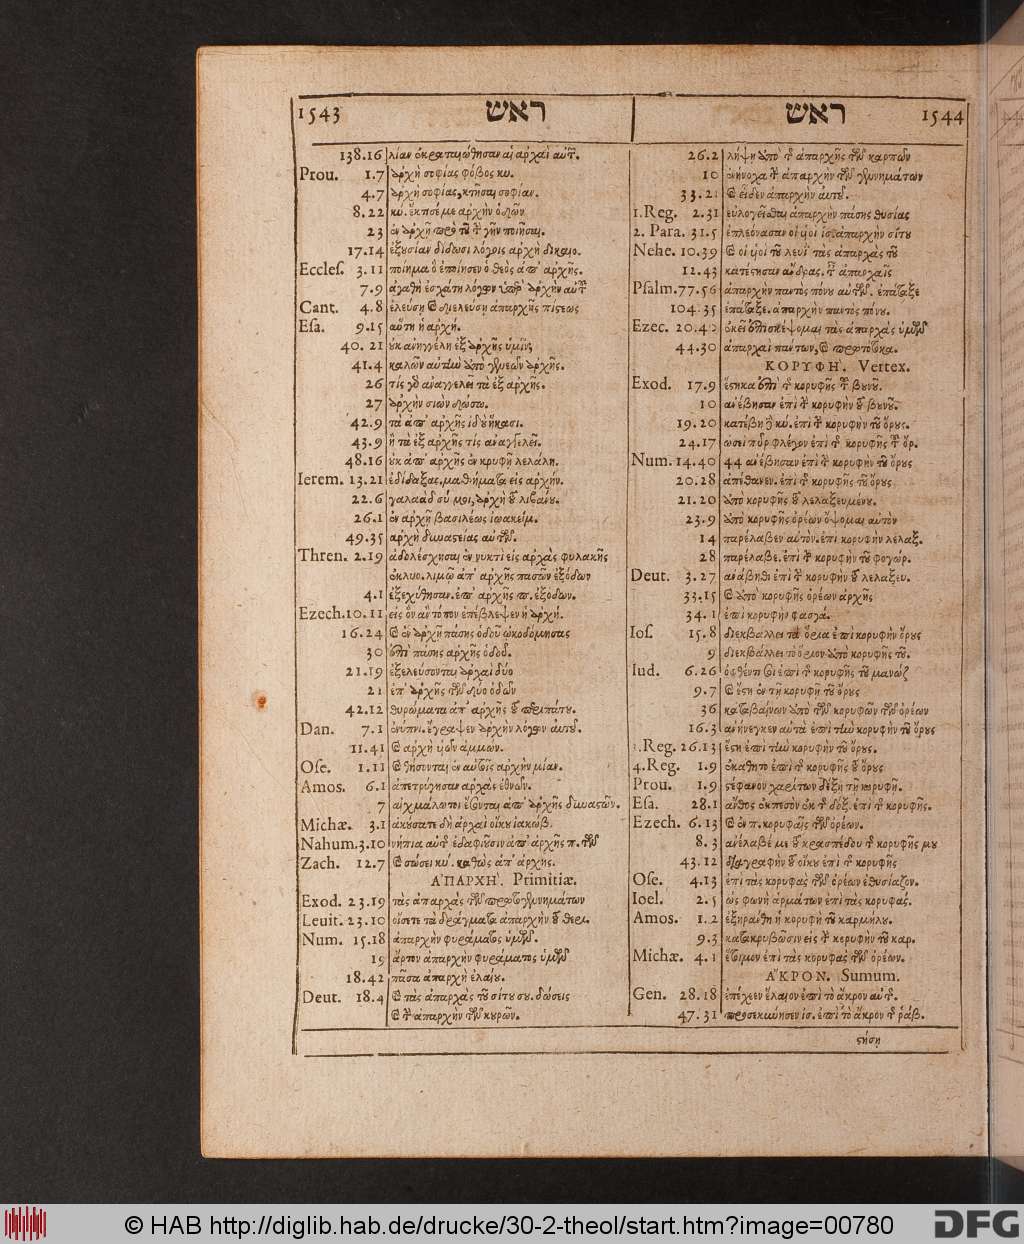 1543 ראש
ראש 1544
138.16 λίαν ἐκραταιώθησαν αἱ ἀρχαὶ αὐτ̃.
Prou. 1.7 ἀρχὴ σοφίας φόβος κυ.
4.7 ἀρχὴ σοφίας, κτῆσαι σοφίαν.
8.22 κύ. ἔκτισέ με ἀρχὴν ὁδῶν
23 ἐν ἀρχῇ πρὸ τοῦ τ̀ γῆν ποιῆσαι.
17.14 ἐξουσίαν δίδωσι λόγοις ἀρχὴ δικαιο.
Eccles. 3.11 ποίημα ὃ ἐποίησεν ὁ θεὸς ἀπ' ἀρχῆς.
7.9 ἀγαθὴ ἐσχάτη λόγων ὑπὲρ ἀρχὴν αὐτ̃
Cant. 4.8 ἐλεύσῃ καὶ διελεύσῃ ἀπαρχῆς πίστεως
Esa. 9.15 αὕτη ἡ ἀρχή.
40.21 οὐκ ἀνηγγέλη ἐξ ἀρχῆς ὑμῖν;
41.4 καλῶν αὐτὴν ἀπὸ γενεῶν ἀρχῆς.
26 τίς γὸ ἀναγγελεῖ τὰ ἐξ ἀρχῆς.
27 ἀρχὴν σιὼν δώσω.
42.9 τὰ ἀπ' ἀρχῆς ἰδοὺ ἥκασι.
43.9 ἢ τὰ ἐξ ἀρχῆς τίς ἀναγγελεῖ.
48.16 οὐκ ἀπ' ἀρχῆς ἐν κρυφῇ λελάλη.
Ierem. 13.21 ἐδίδαξας. μαθήματα εἰς ἀρχήν.
22.6 γαλααὰδ σύ μοι, ἀρχὴ τοῦ λιβάνου.
26.1 ἐν ἀρχῇ βασιλέως ἰωακείμ.
49.35 ἀρχὴ δυναστείας αὐτῶν.
Thren. 2.19 ἀδολέσχησαι ἐν νυκτὶ εἰς ἀρχὰς φυλακῆς
ἐκλυο. λιμῷ ἀπ' ἀρχῆς πασῶν ἐξόδων
4.1 ἐξεχύθησαν. ἐπ' ἀρχῆς π. ἐξόδων.
Ezech. 10.11 εἰς ὃν ἂν τόπον ἐπέβλεψεν ἡ ἀρχή.
16.24 καὶ ἐν ἀρχῇ πάσης ὁδοῦ ᾠκοδόμησας
30 ἐπὶ πάσης ἀρχῆς ὁδοῦ.
21.19 ἐξελεύσονται ἀρχαὶ δύο
21 ἐπ' ἀρχῆς τῶν δύο ὁδῶν
42.12 θυρώματα ἀπ' ἀρχῆς τοῦ περιπάτου.
Dan. 7.1 ἐνύπνι. ἔγραψεν ἀρχὴν λόγων αὐτοῦ.
11.41 καὶ ἀρχὴ υἱῶν ἀμμων.
Ose. 1.11 καὶ θήσονται ἐν αὐτοῖς ἀρχὴν μίαν.
Amos. 6.1 ἀπετρύγησαν ἀρχὰς ἐθνῶν.
7 αἰχμάλωτοι ἔσονται ἀπ' ἀρχῆς δυναστῶν.
Michæ. 3.1 ἀκούσατε δὴ ἀρχαὶ οἴκου ἰακώβ.
Nahum. 3.10 νήπια αὐτ̃ ἐδαφιοῦσιν ἀπ' ἀρχῆς π. τῶν
Zach. 12.7 καὶ σώσει κύ. καθὼς ἀπ' ἀρχῆς.
ἈΠΑΡΧῊ. Primitiæ.
Exod. 23.19 τὰς ἀπαρχὰς τῶν πρωτογεννημάτων
Leuit. 23.10 οἴσετε τὸ δράγματα ἀπαρχὴν τοῦ θερι.
Num. 15.18 ἀπαρχὴν φυράματος ὑμῶν.
19 ἄρτον ἀπαρχὴν φυράματος ὑμῶν
18.42 πᾶσα ἀπαρχὴ ἐλαίου.
Deut. 18.4 καὶ τὰς ἀπαρχὰς τοῦ σίτου σου. δώσεις
καὶ τ̀ ἀπαρχὴν τῶν κουρῶν.
26.2 λήψῃ ἀπὸ τ̃ ἀπαρχῆς τῶν καρπῶν
10 ἐνήνοχα τ̀ ἀπαρχὴν τῶν γεννημάτων
33.21 καὶ εἶδεν ἀπαρχὴν αὐτοῦ.
1.Reg. 2.31 εὐλογεῖσθαι ἀπαρχὴν πάσης θυσίας
2. Para. 31.5 ἐπλεόνασαν οἱ υἱοὶ ἰσ. ἀπαρχὴν σίτου
Nehe. 10.39 καὶ οἱ υἱοὶ τοῦ λευῒ τὰς ἀπαρχὰς τοῦ
12.43 κατέστησαν ἄνδρας. τ̃ ἀπαρχαῖς
Psalm. 77.56 ἀπαρχὴν παντὸς πόνου αὐτῶν. ἐπάταξε
104.35 ἐπάταξε. ἀπαρχὴν παντὸς πόνου.
Ezec. 20.40 ἐκεῖ ἐπισκέψομαι τὰς ἀπαρχὰς ὑμῶν
44.30 ἀπαρχαὶ πάντων, καὶ πρωτότοκα.
ΚΟΡΥΦῊ. Vertex.
Exod. 17.9 ἕστηκα ἐπὶ τ̃ κορυφῆς τ̃ βουνοῦ.
10 ἀνέβησαν ἐπὶ τ̀ κορυφὴν τοῦ βουνοῦ.
19.20 κατέβη κύ. ἐπὶ τ̀ κορυφὴν τοῦ ὄρους.
24.17 ὡσεὶ πῦρ φλέγον ἐπὶ τ̃ κορυφῆς τ̃ ὄρ.
Num. 14.40 44 ἀνέβησαν ἐπὶ τ̀ κορυφὴν τοῦ ὄρους
20.28 ἀπέθανεν. ἐπὶ τ̃ κορυφῆς τοῦ ὄρους
21.20 ἀπὸ κορυφῆς τοῦ λελαξευμένου.
23.9 ἀπὸ κορυφῆς ὀρέων ὄψομαι αὐτὸν
14 παρέλαβεν αὐτὸν. ἐπὶ κορυφὴν λελαξ.
28 παρέλαβε. ἐπὶ τ̀ κορυφὴν τοῦ φογώρ.
Deut. 3.27 ἀνάβηθι ἐπὶ τ̀ κορυφὴν τοῦ λελαξευ.
33.15 καὶ ἀπὸ κορυφῆς ὀρέων ἀρχῆς
34.1 ἐπὶ κορυφὴν φασγά.
Ios. 15.8 διεκβάλλει τὰ ὅρια ἐπὶ κορυφὴν ὄρους
9 διεκβάλλει τὸ ὅριον ἀπὸ κορυφῆς τοῦ.
Iud. 6.26 ἐπὶ τ̃ κορυφῆς τοῦ μανώζ
9.7 καὶ ἔστη ἐν τῇ κορυφῇ τοῦ ὄρους
36 καταβαίνων ἀπὸ τῶν κορυφῶν τῶν ὀρέων
16.3 ἀνήνεγκεν αὐτὰ ἐπὶ τὴν κορυφὴν τοῦ ὄρους
1.Reg. 26.13 ἔστη ἐπὶ τὴν κορυφὴν τοῦ ὄρους.
4.Reg. 1.9 ἐκάθητο ἐπὶ τ̃ κορυφῆς τοῦ ὄρους
Prou. 1.9 στέφανον χαρίτων δέξῃ τῇ κορυφῇ.
Esa. 28.1 ἄνθος ἐκπεσὸν ἐκ τ̃ δόξ. ἐπὶ τ̃ κορυφῆς.
Ezech. 6.13 καὶ ἐν π. κορυφαῖς τῶν ὀρέων.
8.3 ἀνέλαβέ με τοῦ κρασπέδου τ̃ κορυφῆς μου
43.12 διαγραφὴν τοῦ οἴκου ἐπὶ τ̃ κορυφῆς
Ose. 4.13 ἐπὶ τὰς κορυφὰς τῶν ὀρέων ἐθυσίαζον.
Ioel. 2.5 ὡς φωνὴ ἁρμάτων ἐπὶ τὰς κορυφάς.
Amos. 1.2 ἐξηράνθη ἡ κορυφὴ τοῦ καρμήλου.
9.3 κατακρυβῶσιν εἰς τ̀ κορυφὴν τοῦ καρ.
Michæ. 4.1 ἕτοιμον ἐπὶ τὰς κορυφὰς τῶν ὀρέων.
ἌΚΡΟΝ. Sumum.
Gen. 28.18 ἐπέχεεν ἔλαιον ἐπὶ τὸ ἄκρον αὐτ̃.
47.31 προσεκύνησεν ἰσ. ἐπὶ τὸ ἄκρον τ̃ ῥάβ.
στήσῃ
© HAB http://diglib.hab.de/drucke/30-2-theol/start.htm?image=00780
DFG